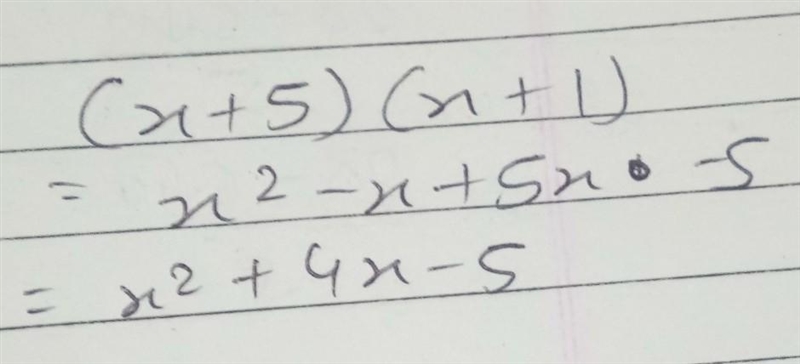 (x+5)(x+1)
= x² -x+5x -5
= x² + 4x-5